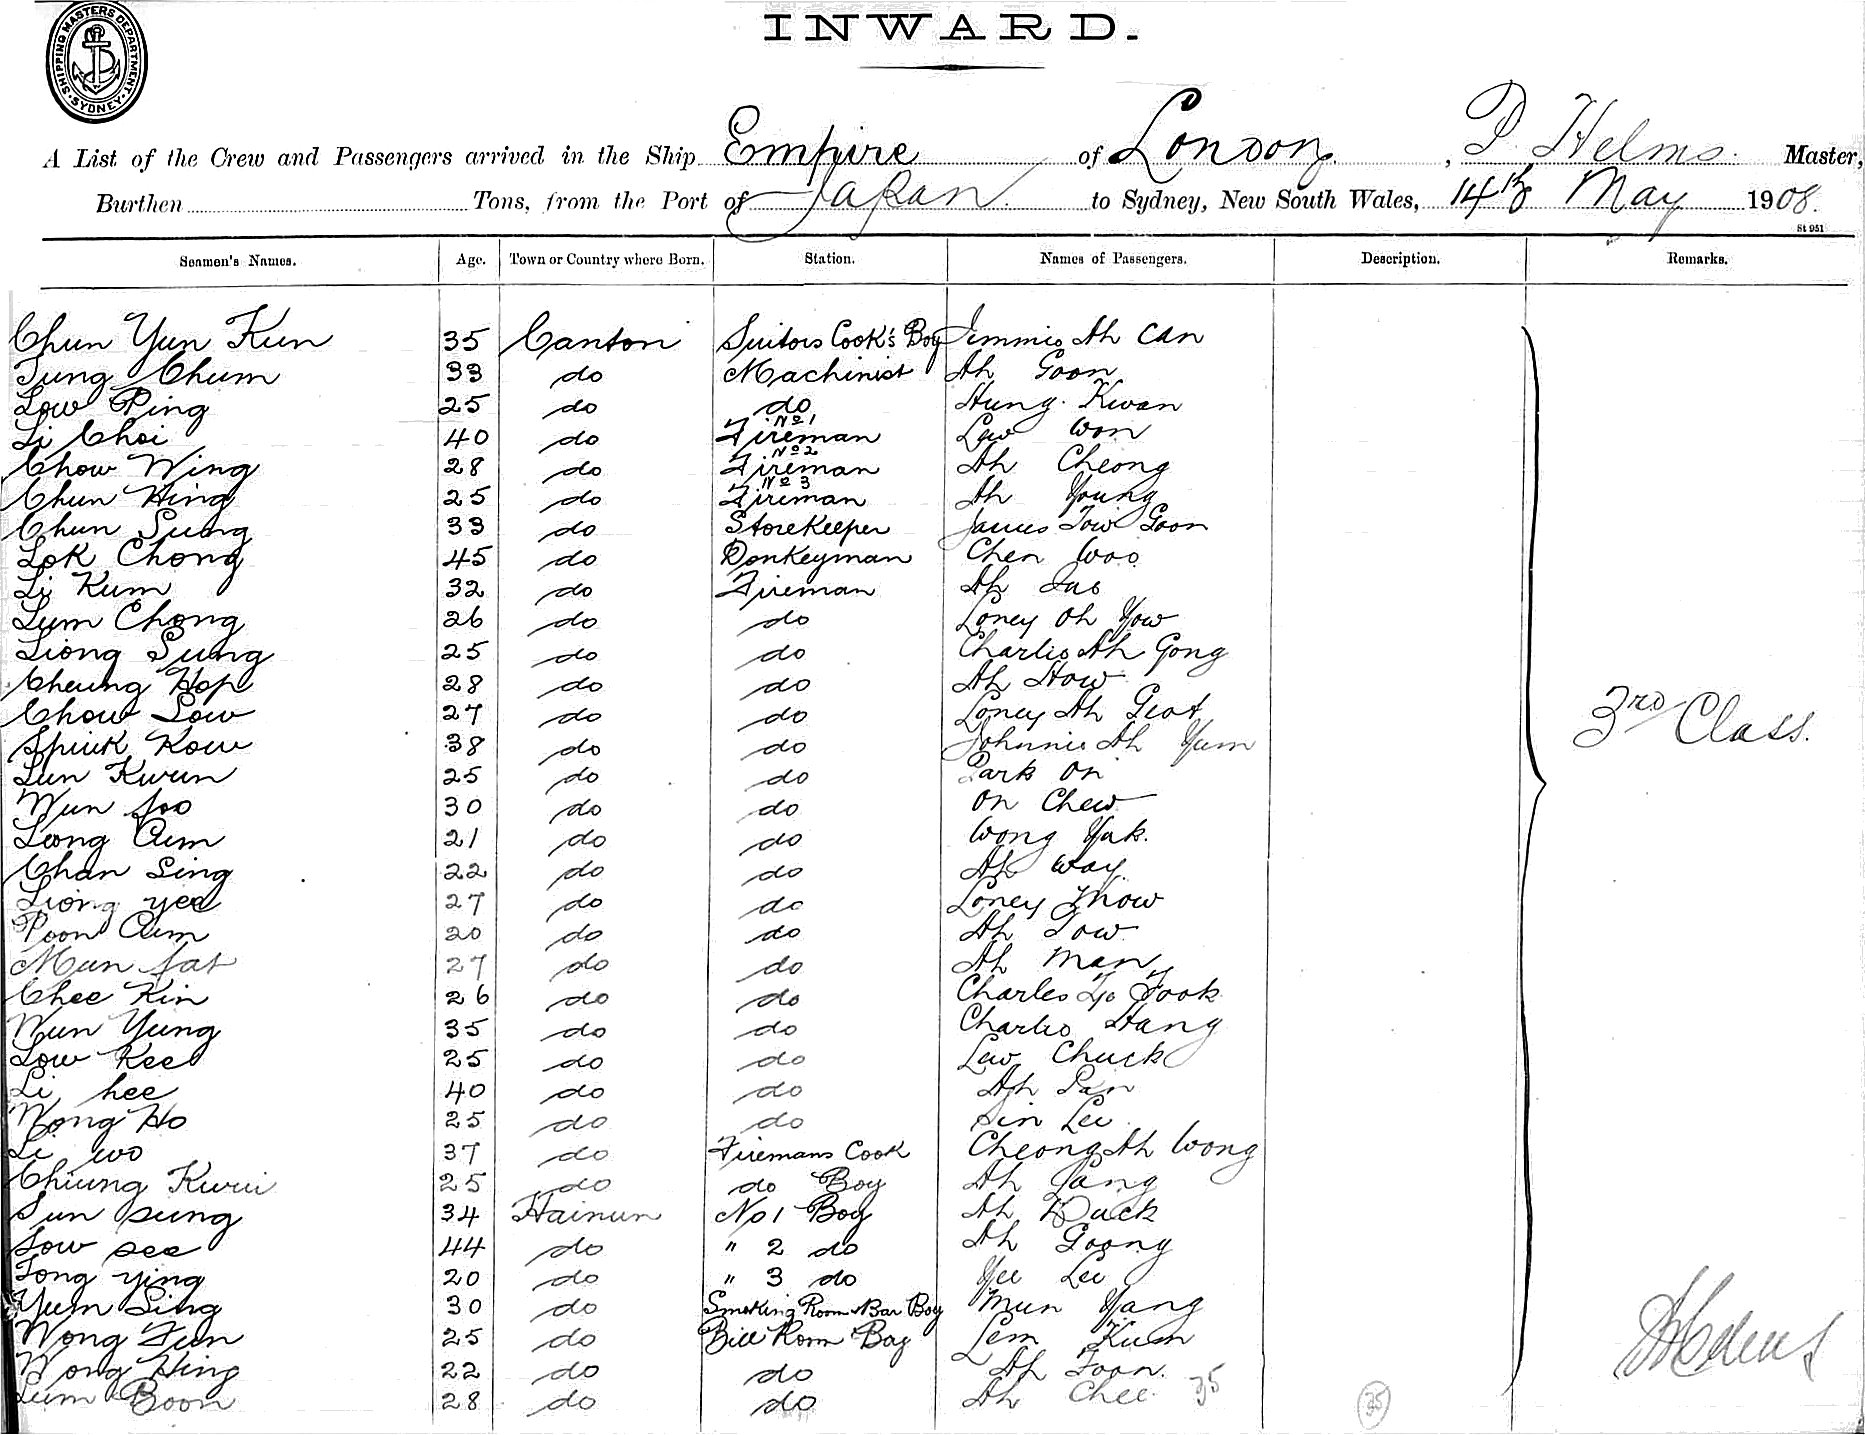 SHIPPING MASTERS DEPARTMENT SYDNEY
INWARD.
A List of the Crew and Passengers arrived in the Ship Empire of London, P. Helms Master,
Burthen Tons, from the Port of Japan to Sydney, New South Wales, 14th May 1908.
St 951
Seamen's Names. Age. Town or Country where Born. Station. Names of Passengers. Description. Remarks.
Chun Yun Kun 35 Canton Cook's Boy Jimmie Ah Can
Tung Chum 33 do Machinist Ah Goon
Low Ping 25 do do Hung Kwan
Li Choi 40 do No 1 Fireman Law Won
Chow Wing 28 do No 2 Fireman Ah Cheong
Chun Hing 25 do No 3 Fireman Ah Young
Chun Sung 33 do Storekeeper James Tow Goon
Lok Chong 45 do Donkeyman Chen Woo
Li Kum 32 do Fireman Ah
Lum Chong 26 do do Loney Oh Yow
Liong Sung 25 do do Charlie Ah Gong
Cheung Hop 28 do do Ah How
Chow Low 27 do do Loney Ah
Kow 38 do do Johnnie Ah Yum
Lun Kwun 25 do do On
Wun foo 30 do do On Chew
Leong Cum 21 do do Wong Yuk.
Chan Sing 22 do do Ah Way
Liong yee 27 do do Loney
Poon Cum 20 do do Ah Tow
Mun fat 27 do do Ah Man
Chee Kin 26 do do Charles Fook
Wun Yung 35 do do Charlie Hang
Low Kee 25 do do Law Chuck
Li hee 40 do do Ah
Wong Ho 25 do do Sin Lee
Li wo 37 do Firemans Cook Cheong Ah Wong
Chiung 25 do do Boy Ah
Sun sung 34 Hainun No 1 Boy Ah Duck
Low see 44 do " 2 do Ah Goong
Tong ying 20 do " 3 do Yee Lee
Yum Sing 30 do Smoking Room Bar Boy Mun Yang
Wong Fun 25 do Room Boy Lem Kum
Wong Hing 22 do do Ah Foon.
Lum Boon 28 do do Ah Chee. 35
3rd Class.
35